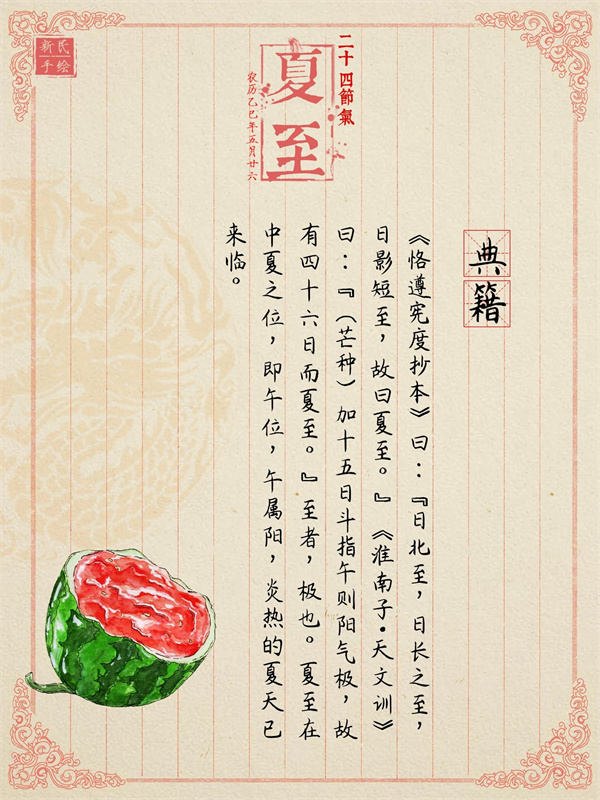 新民
手绘
二十四節氣
夏至
农历乙巳年五月廿六
典籍
《恪遵宪度抄本》曰：『日北至，日长之至，
日影短至，故曰夏至。』《淮南子·天文训》
曰：『（芒种）加十五日斗指午则阳气极，故
有四十六日而夏至。』至者，极也。夏至在
中夏之位，即午位，午属阳，炎热的夏天已
来临。